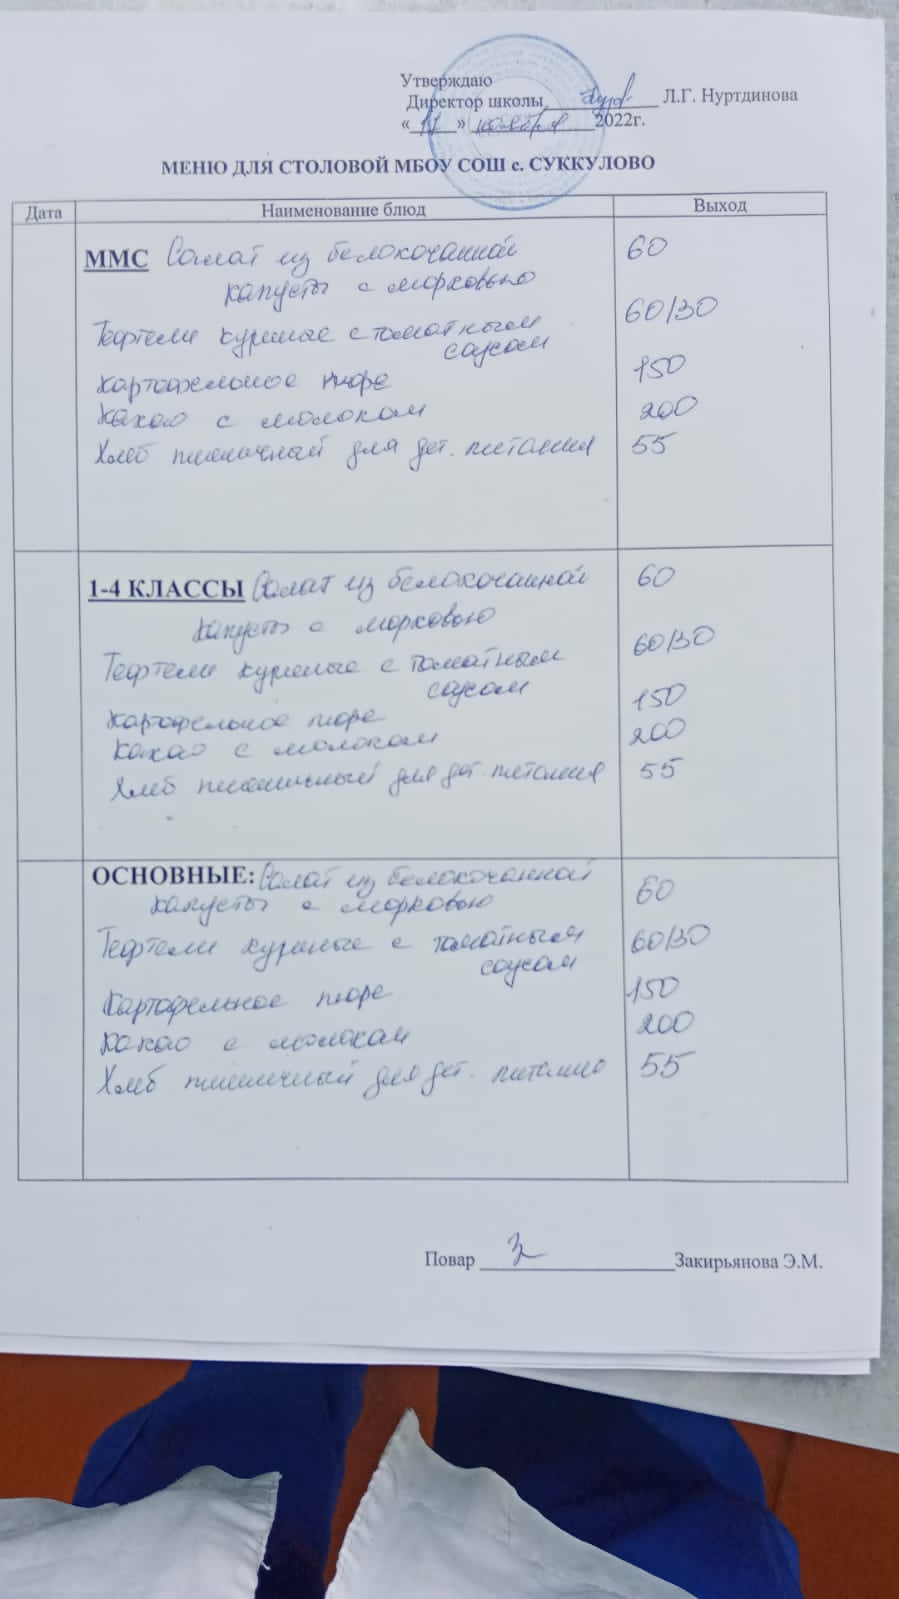 Утверждаю
Директор школы Л.Г. Нуртдинова
« » ноября 2022г.
МЕНЮ ДЛЯ СТОЛОВОЙ МБОУ СОШ с. СУККУЛОВО
Дата Наименование блюд Выход
ММС Салат из белокочанной 60
капусты с морковью
Тефтели куриные с томатным 60/30
соусом
Картофельное пюре 150
Какао с молоком 200
Хлеб пшеничный для дет. питания 55
1-4 КЛАССЫ Салат из белокочанной 60
капусты с морковью
Тефтели куриные с томатным 60/30
соусом
Картофельное пюре 150
Какао с молоком 200
Хлеб пшеничный для дет. питания 55
ОСНОВНЫЕ: Салат из белокочанной 60
капусты с морковью
Тефтели куриные с томатным 60/30
соусом
Картофельное пюре 150
Какао с молоком 200
Хлеб пшеничный для дет. питания 55
Повар Закирьянова Э.М.